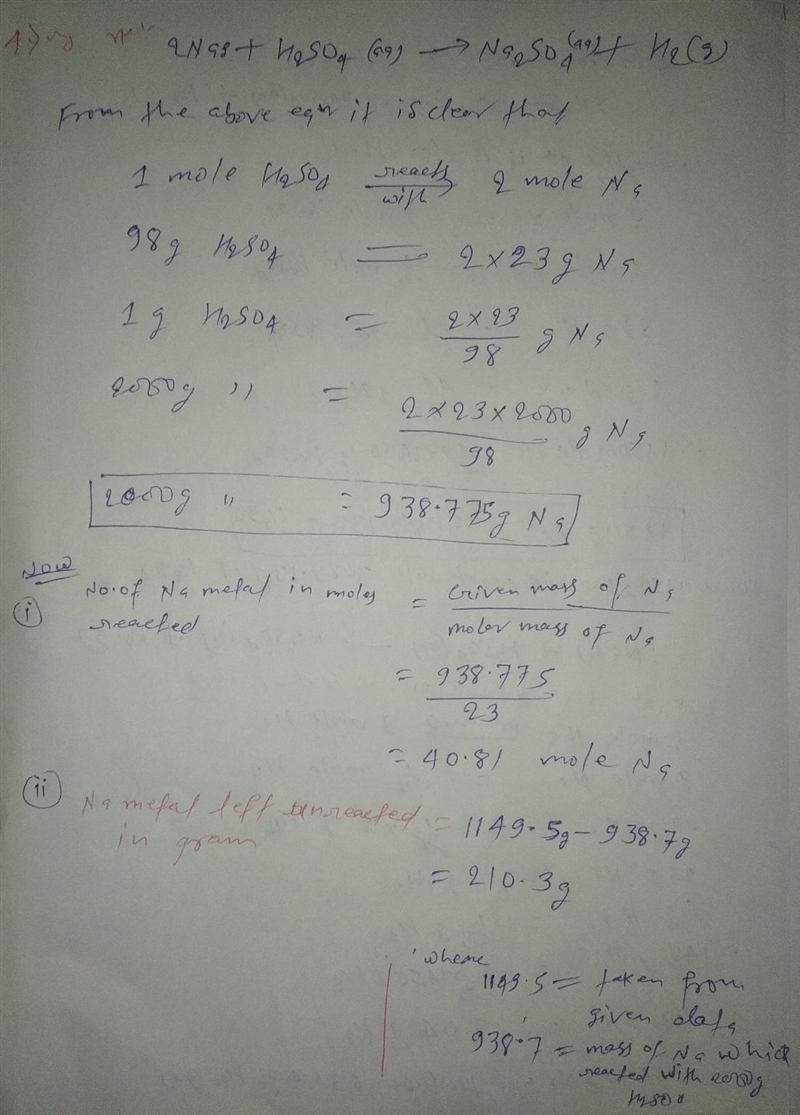 2Na(s) + H2SO4 (aq) → Na2SO4(aq) + H2(g)
From the above eqn it is clear that
1 mole H2SO4 reacts with 2 mole Na
98g H2SO4 = 2 x 23 g Na
1 g H2SO4 = 2 x 23 / 98 g Na
2000g " = 2 x 23 x 2000 / 98 g Na
2000g " = 938.775g Na
Now
(i) No. of Na metal in moles reacted = Given mass of Na / molar mass of Na
= 938.775 / 23
= 40.81 mole Na
(ii) Na metal left unreacted in gram = 1149.5g - 938.7g
= 210.3g
where
1149.5 = taken from
given data
938.7 = mass of Na which
reacted with 2000g
H2SO4